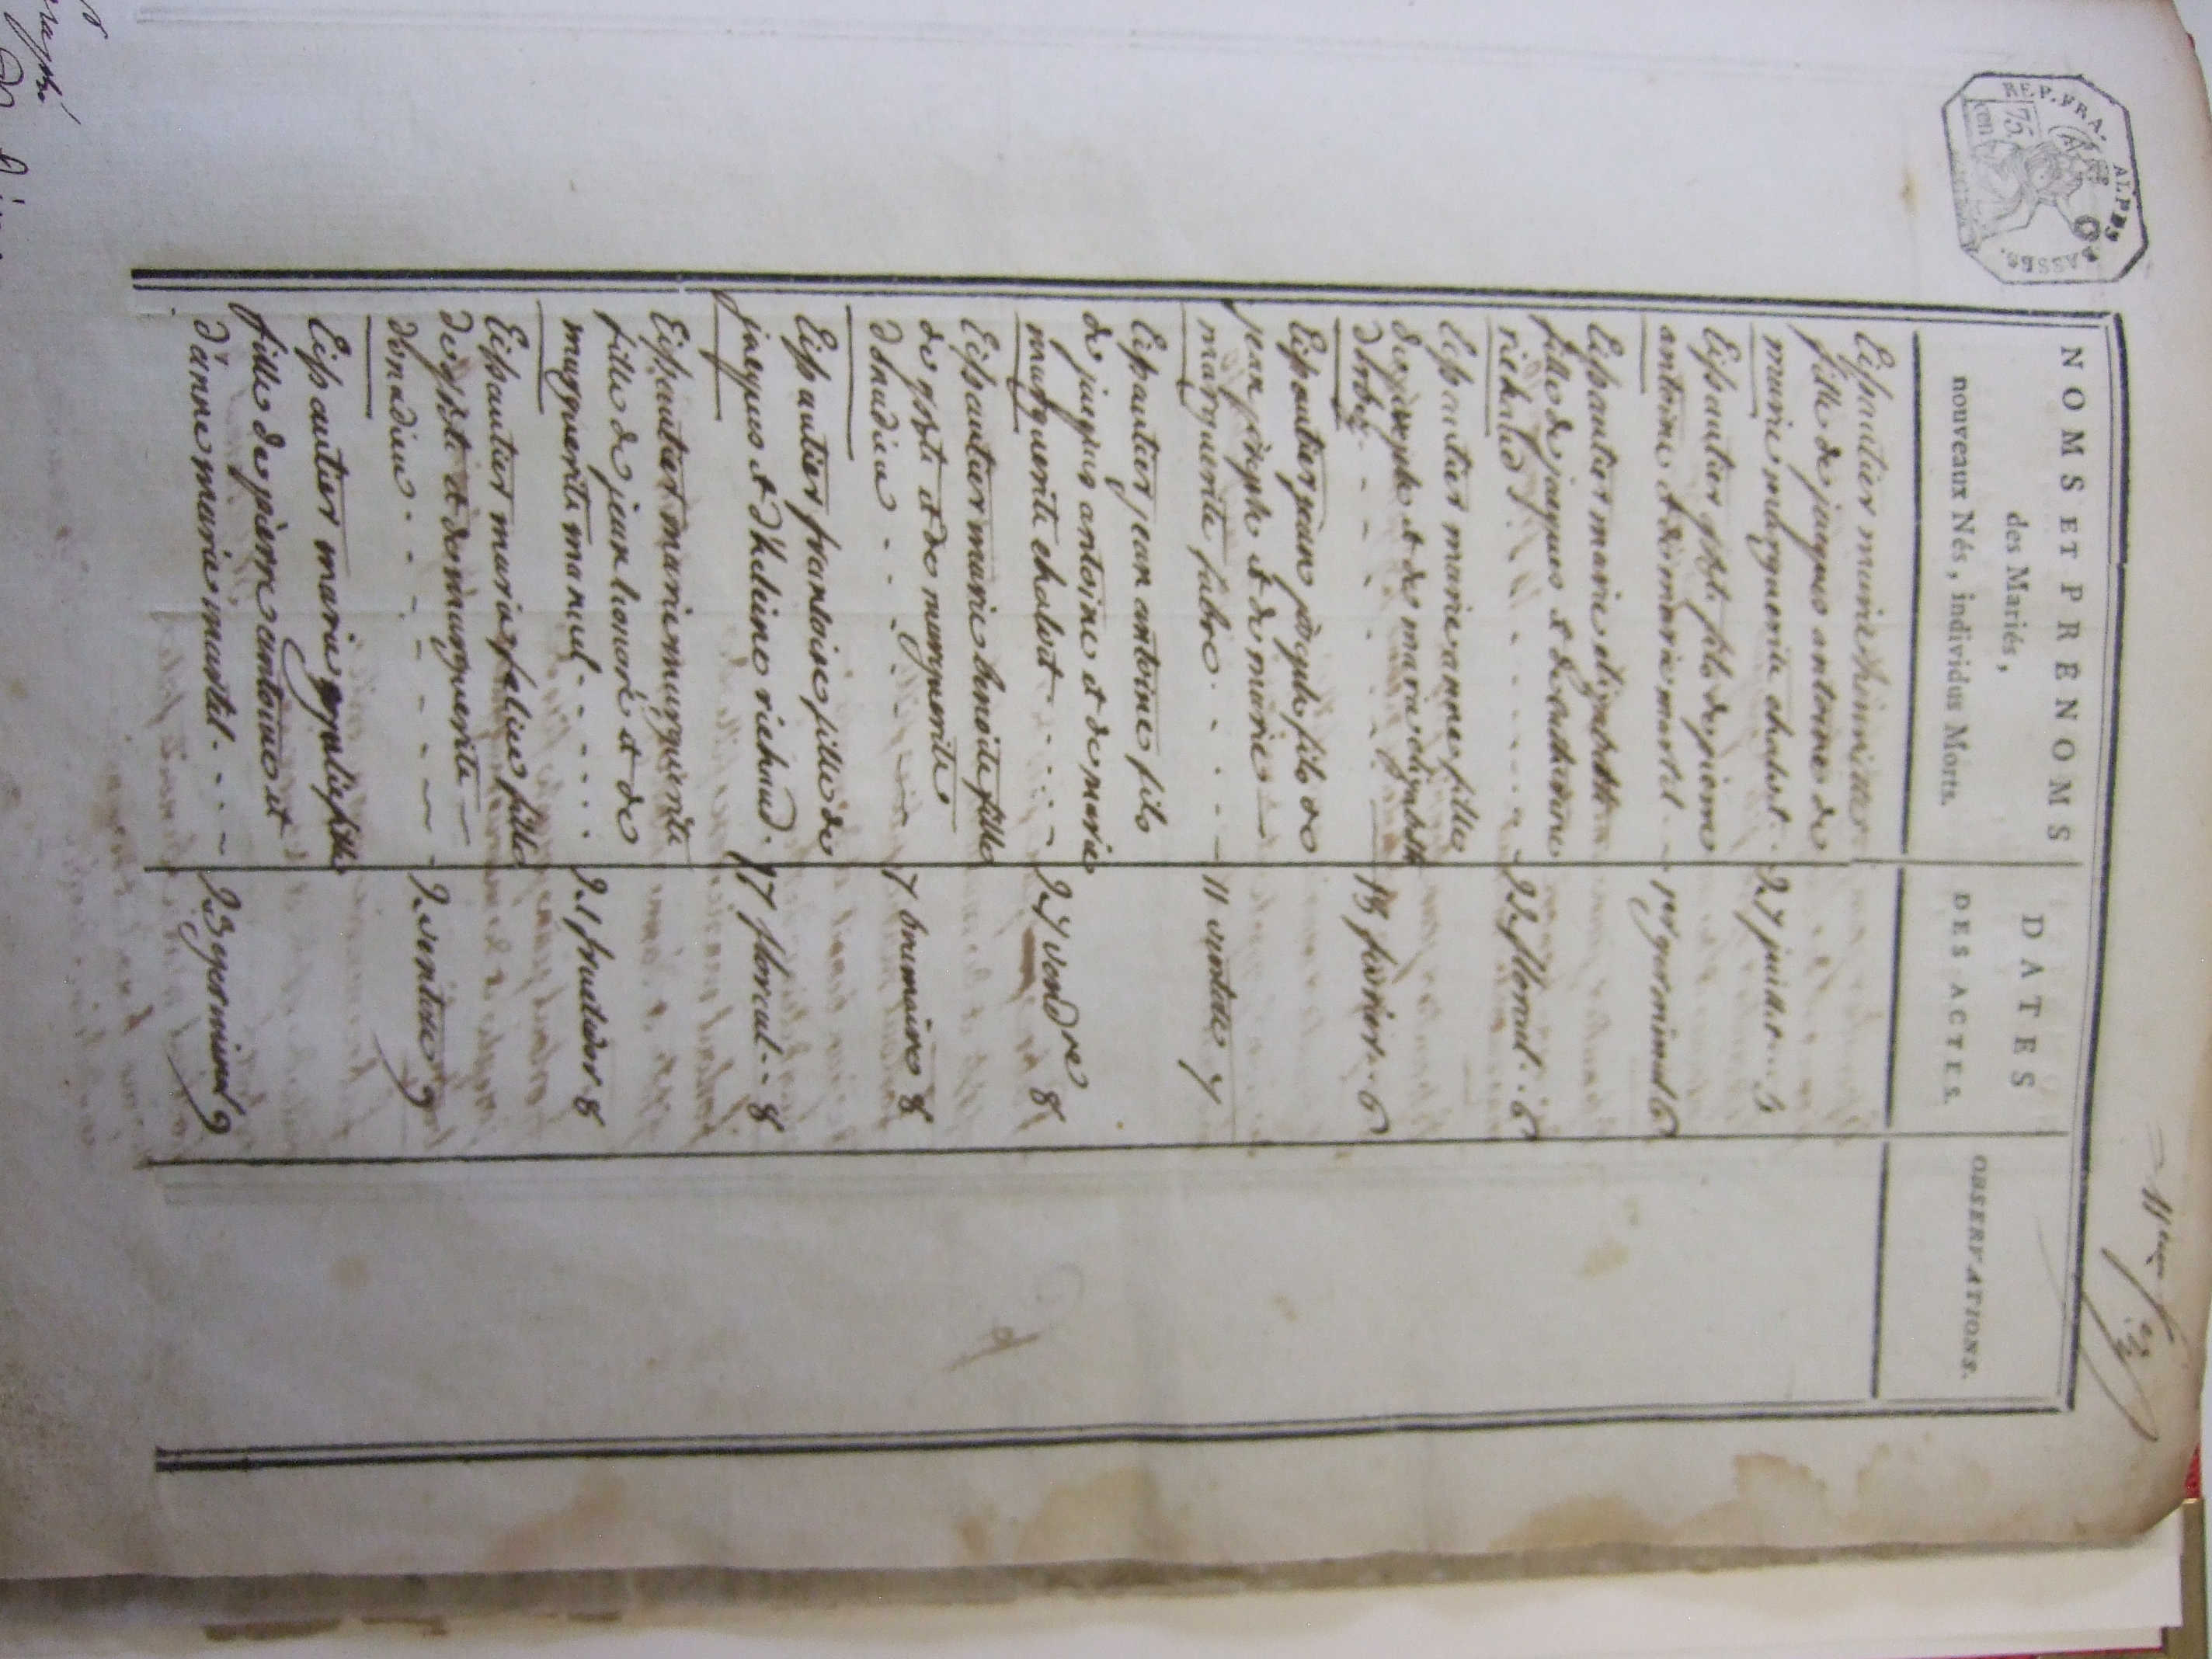 REP. FRA.
ALPES
BASSES.
75.
cen
11
NOMS ET PRÉNOMS
des Mariés,
nouveaux Nés, individus Morts.
DATES
DES ACTES.
OBSERVATIONS.
Eissautier marie
fille de jacques antoine de
marie marguerite chabot . 27 juillet . . 5
Eissautier fils de pierre
antoine et de marie martel . . 1er germinal 6
Eissautier marie elizabeth
fille de jacques et de catherine
richaud . . . . . 22 floreal . . 6
Eissautier marie anne fille
de joseph et de marie elizabeth
. . . . 6
Eissautier jean joseph fils de
jean joseph et de marie
marguerite fabre . . . . 11 ventose 7
Eissautier jean antoine fils
de jacques antoine et de marie
marguerite chabot . . . . 27 vendre 8
Eissautier marie benoite fille
de et de marguerite
. . . . 7 brumaire 8
Eissautier francoise fille de
jacques et d'heleine richaud . 17 floreal . . 8
Eissautier marie marguerite
fille de jean honoré et de
marguerite manuel . . . . . 21 fructidor 8
Eissautier marie felicie fille
de et de marguerite
donadieu . . . . . 2 ventose 9
Eissautier marie fille
de pierre antoine et
d'anne marie martel . . . 23 germinal 9